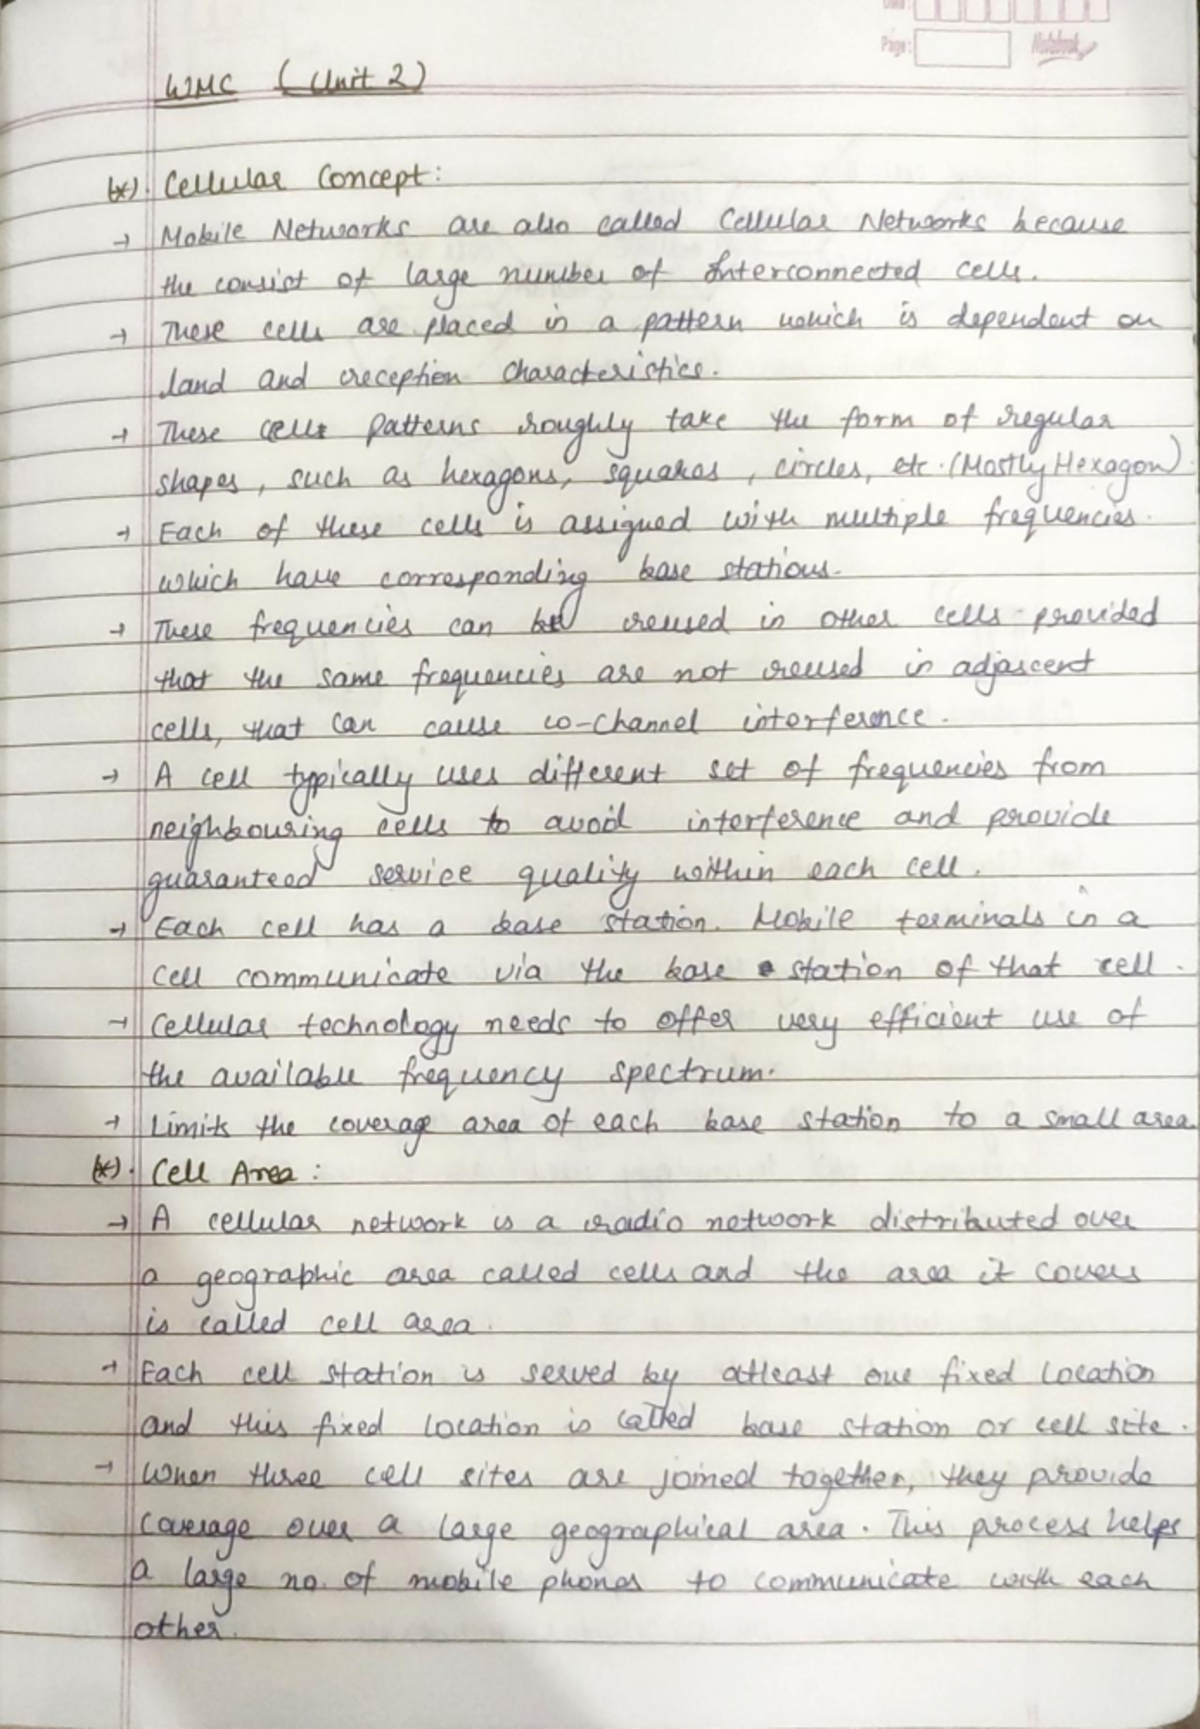 Page:
Notebook
WMC (Unit 2)
(*). Cellular Concept:
→ Mobile Networks are also called Cellular Networks because
the consist of large number of Interconnected cells.
→ These cells are placed in a pattern which is dependent on
land and reception characteristics.
→ These cells patterns roughly take the form of regular
shapes, such as hexagons, squares, circles, etc. (Mostly Hexagon)
→ Each of these cells is assigned with multiple frequencies.
which have corresponding base stations.
→ These frequencies can be reused in other cells provided
that the same frequencies are not reused in adjascent
cells, that can cause co-channel interference.
→ A cell typically uses different set of frequencies from
neighbouring cells to avoid interference and provide
guaranteed service quality within each cell.
→ Each cell has a base station. Mobile terminals in a
cell communicate via the base station of that cell.
→ Cellular technology needs to offer very efficient use of
the available frequency spectrum.
→ Limits the coverage area of each base station to a small area.
(*). Cell Area:
→ A cellular network is a radio network distributed over
a geographic area called cells and the area it covers
is called cell area.
→ Each cell station is served by atleast one fixed location
and this fixed location is called base station or cell site.
→ When three cell sites are joined together, they provide
coverage over a large geographical area. This process helps
a large no. of mobile phones to communicate with each
other.